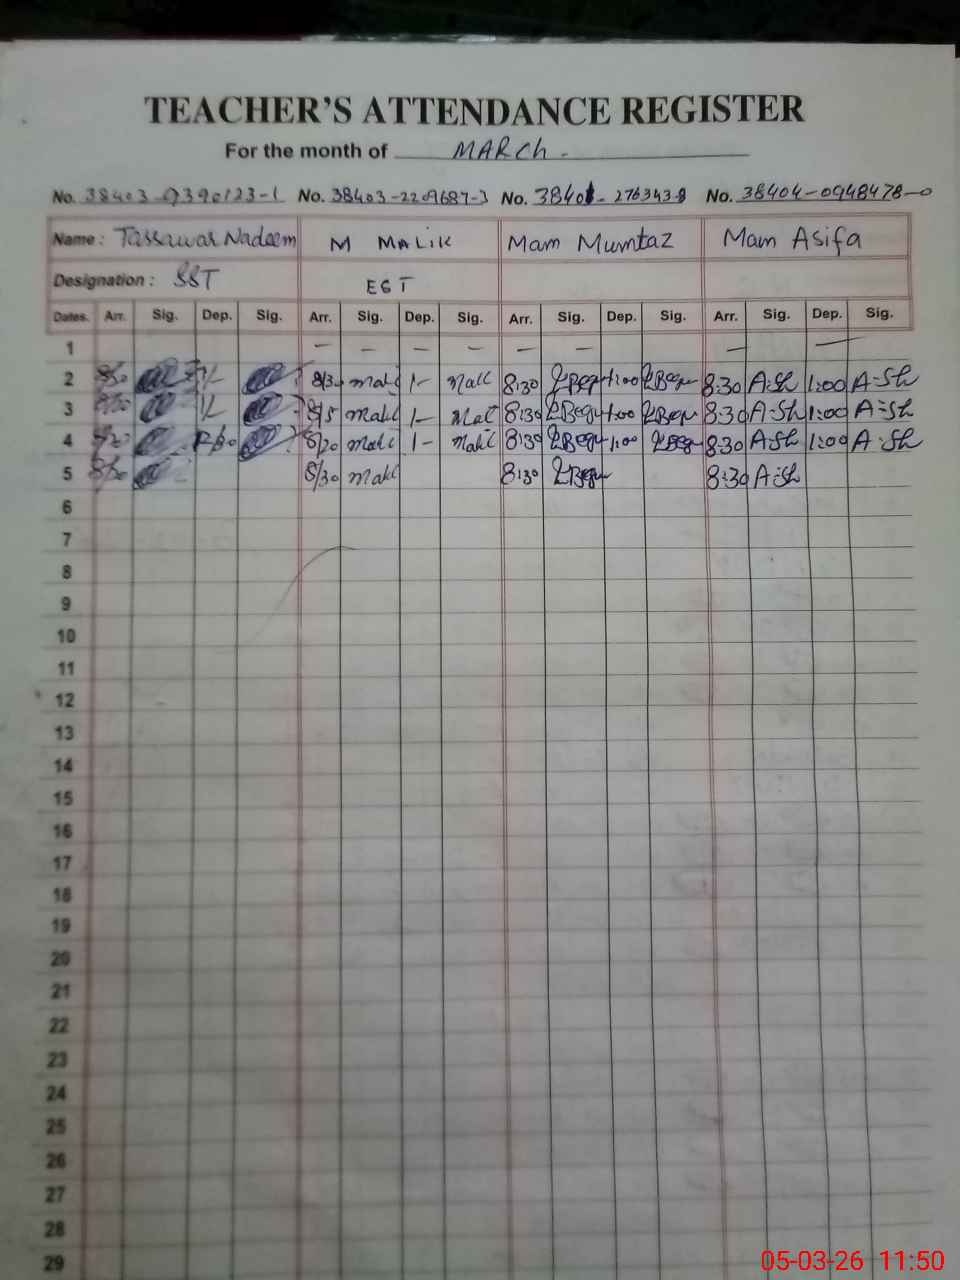 TEACHER'S ATTENDANCE REGISTER
For the month of MARCH.
No. 38403-0390123-1 No. 38403-2209687-3 No. No. 38404-0948478-0
Name : Tassawar Nadeem M MALIK Mam Mumtaz Mam Asifa
Designation : SST EST
Dates. Arr. Sig. Dep. Sig. Arr. Sig. Dep. Sig. Arr. Sig. Dep. Sig. Arr. Sig. Dep. Sig.
1 — — — — — — — —
2 8/30 1/- 8/30 Malc 1- Malc 8:30 1:00 8:30 A.Sh 1:00 A-Sh
3 8/30 1/- Malc 1- Malc 8:30 1:00 8:30 A.Sh 1:00 A-Sh
4 12/30 8/20 Malc 1- Malc 8:30 1:00 8:30 A.Sh 1:00 A.Sh
5 8/30 8/30 Malc 8:30 8:30 A.Sh
6
7
8
9
10
11
12
13
14
15
16
17
18
19
20
21
22
23
24
25
26
27
28
29
05-03-26 11:50